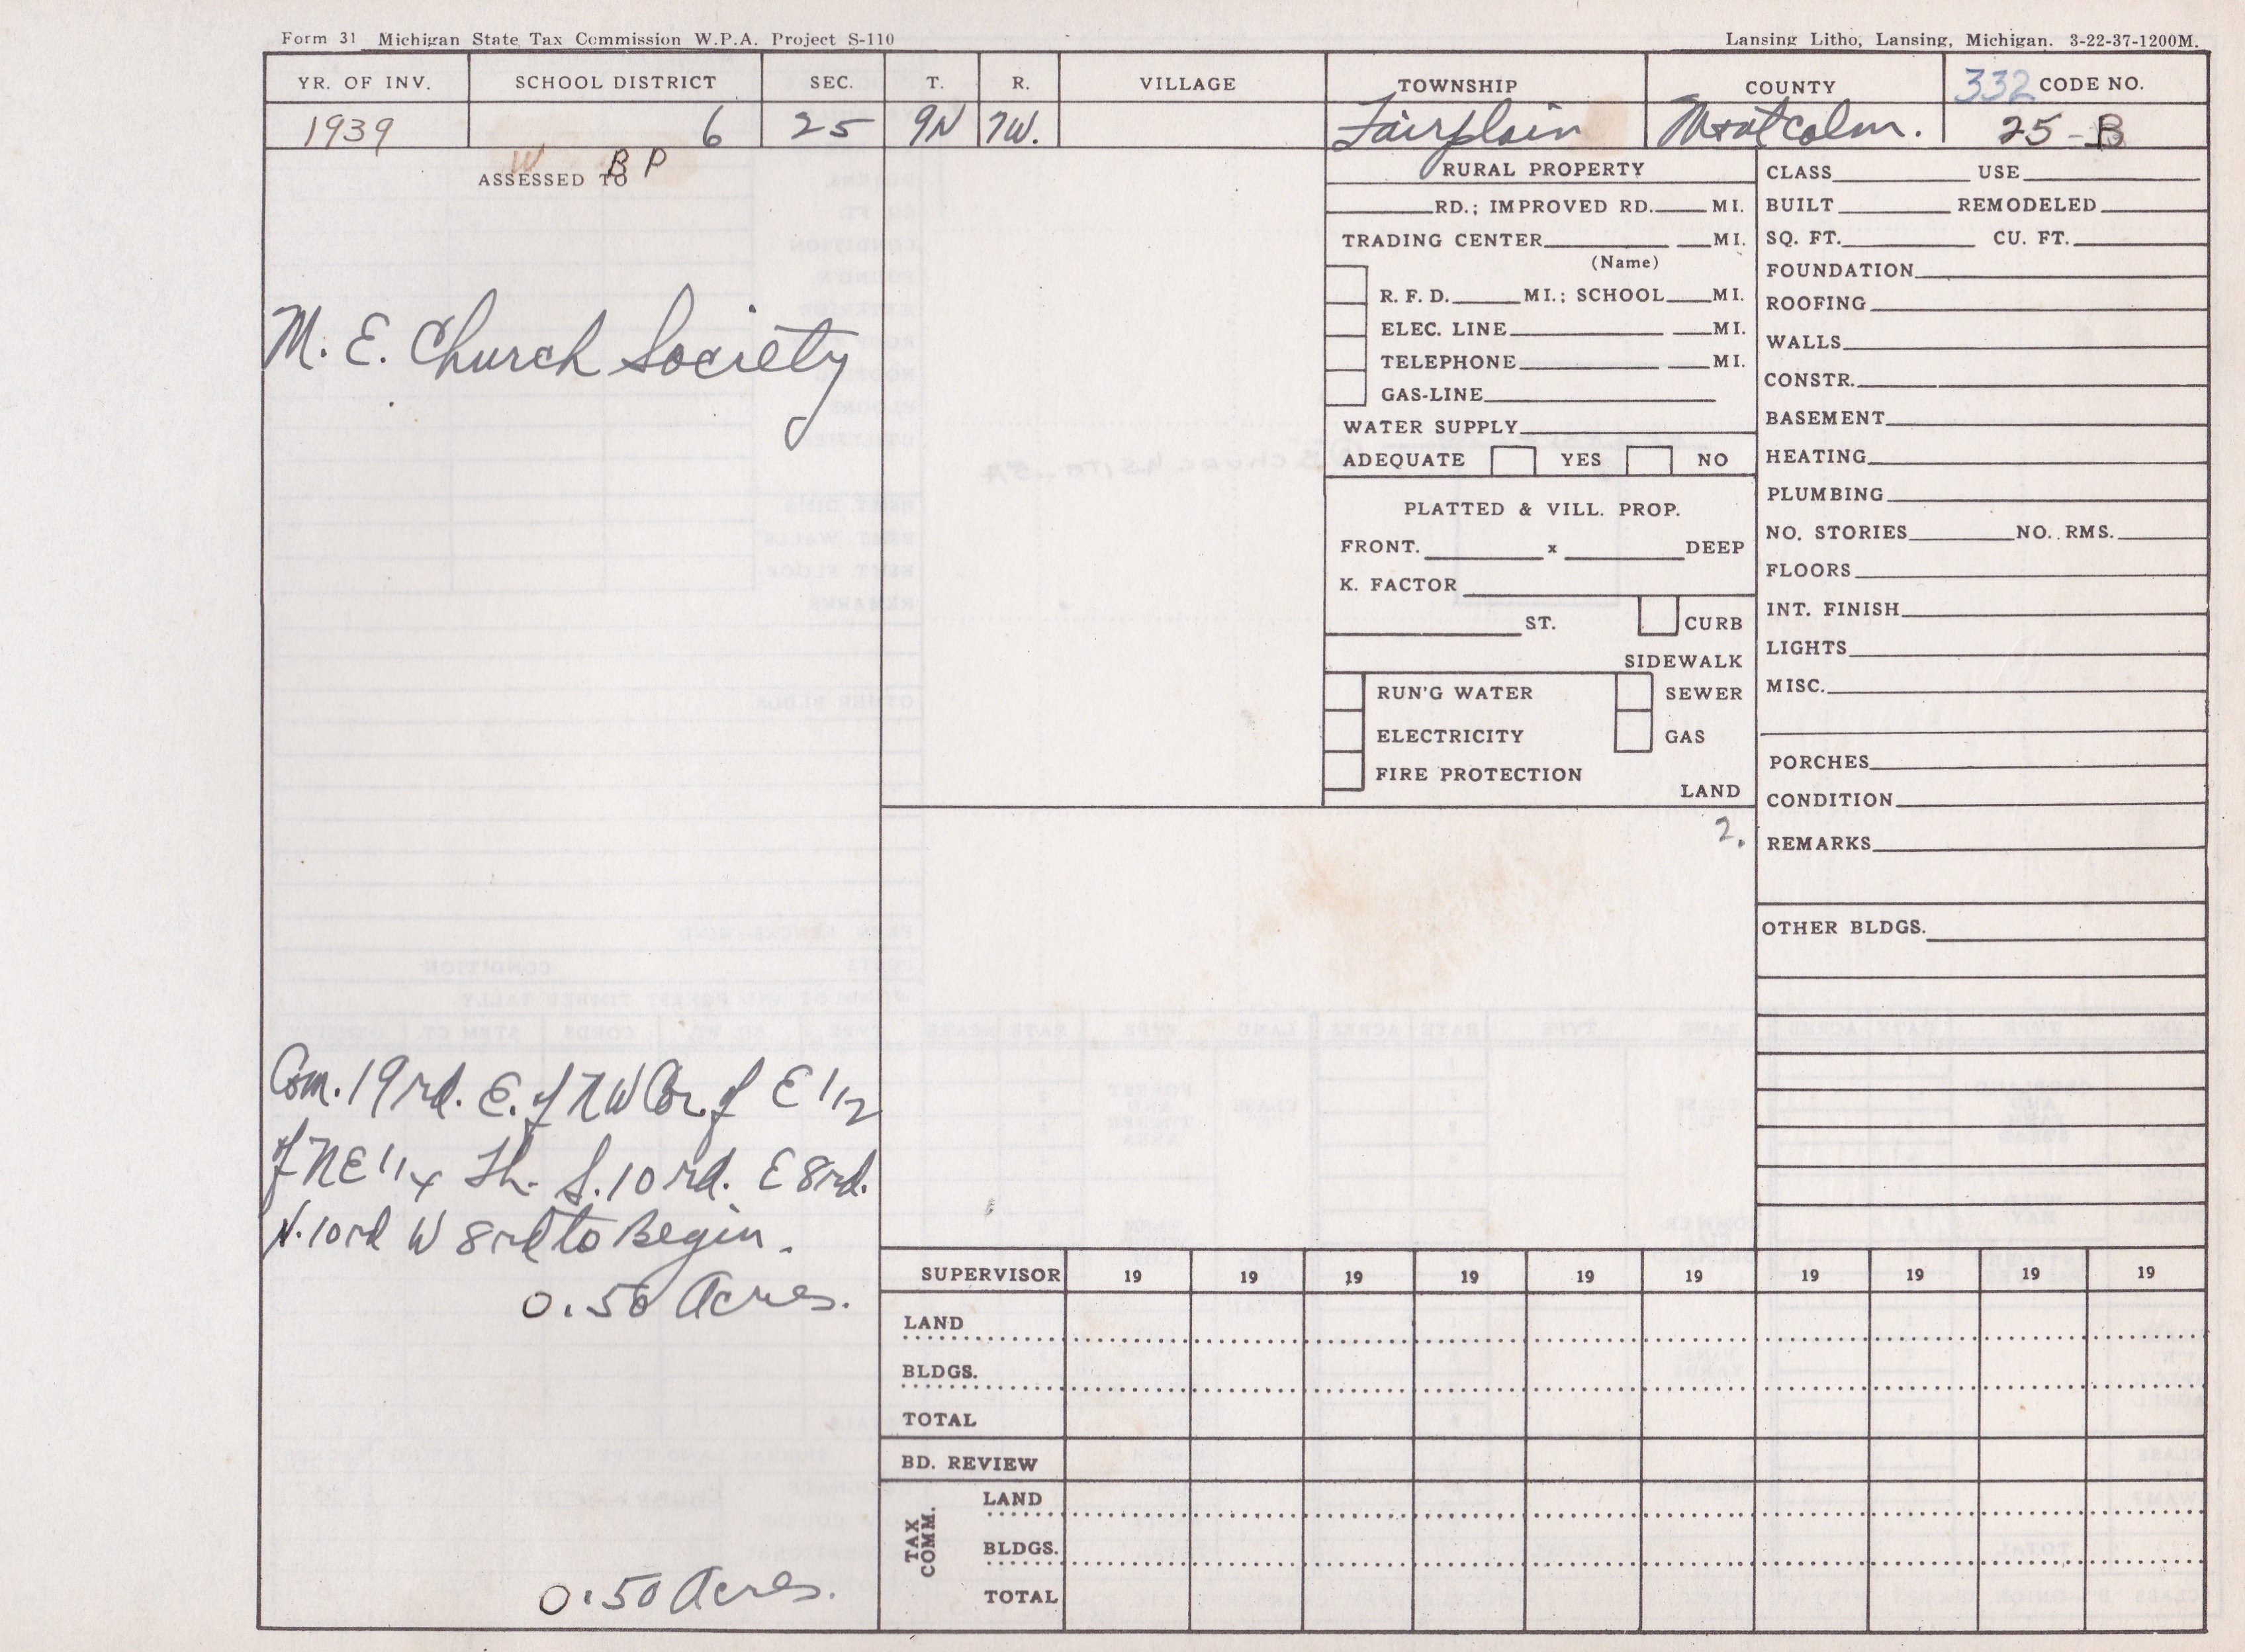 Form 31 Michigan State Tax Commission W.P.A. Project S-110
Lansing Litho, Lansing, Michigan. 3-22-37-1200M.
YR. OF INV. SCHOOL DISTRICT SEC. T. R. VILLAGE TOWNSHIP COUNTY 332 CODE NO.
1939 6 25 9N 7W. Fairplain Montcalm. 25-B
W BP
ASSESSED TO
M. E. Church Society
Com. 19 rd. E. of NW Cor. of E 1/2
of NE 1/4 Th. S. 10 rd. E 8 rd.
N. 10 rd W 8 rd to Begin.
0.50 Acres.
0.50 Acres.
RURAL PROPERTY
RD.; IMPROVED RD. MI.
TRADING CENTER MI.
(Name)
R. F. D. MI.; SCHOOL MI.
ELEC. LINE MI.
TELEPHONE MI.
GAS-LINE
WATER SUPPLY
ADEQUATE YES NO
PLATTED & VILL. PROP.
FRONT. x DEEP
K. FACTOR
ST. CURB
SIDEWALK
RUN'G WATER SEWER
ELECTRICITY GAS
FIRE PROTECTION
LAND
2.
CLASS USE
BUILT REMODELED
SQ. FT. CU. FT.
FOUNDATION
ROOFING
WALLS
CONSTR.
BASEMENT
HEATING
PLUMBING
NO. STORIES NO. RMS.
FLOORS
INT. FINISH
LIGHTS
MISC.
PORCHES
CONDITION
REMARKS
OTHER BLDGS.
SUPERVISOR 19 19 19 19 19 19 19 19 19 19
LAND
BLDGS.
TOTAL
BD. REVIEW
TAX COMM.
LAND
BLDGS.
TOTAL